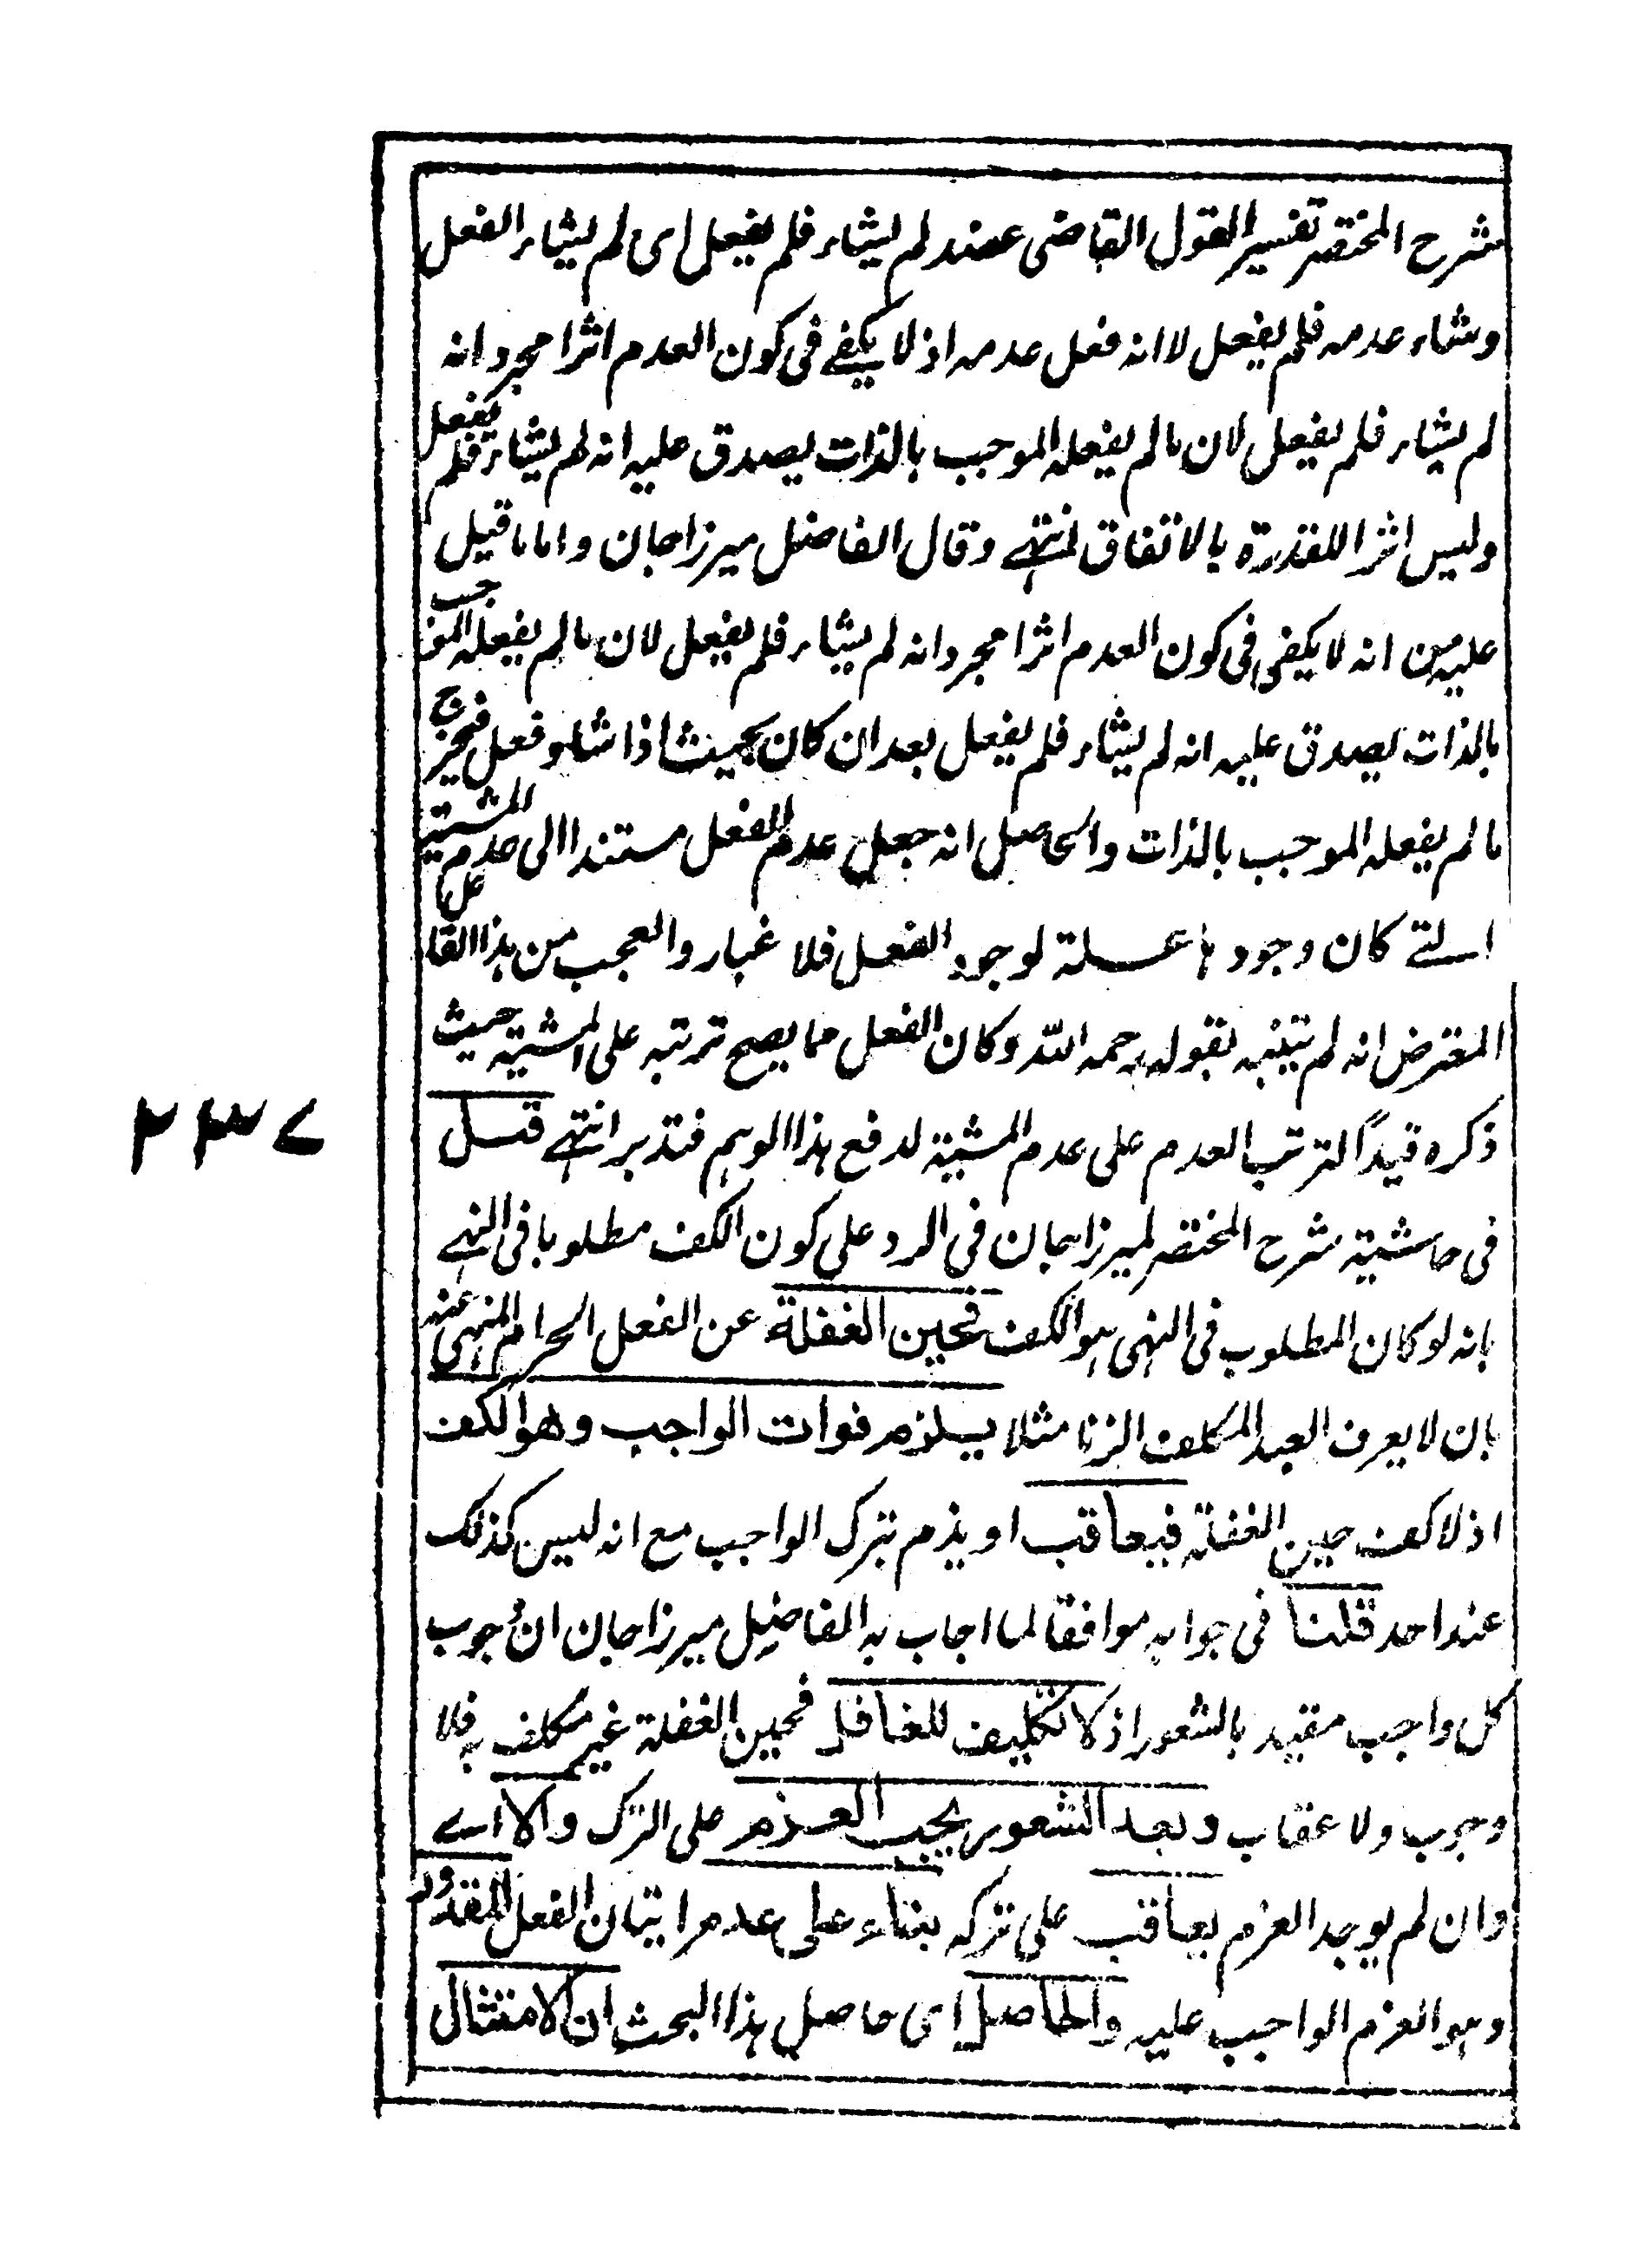 شرح المختصر تفسير القول القاضى عضد لم يشاء فلم يفعل اى لم يشاء الفعل
وشاء عدمه فلم يفعل لا انه فعل عدمه اذ لا يكفے فى كون العدم اثرا مجرد انه
لم يشاء فلم يفعل لان ما لم يفعله الموجب بالذات يصدق عليه انه لم يشاء فلم يفعل
وليس اثرا للقدرة بالاتفاق انتهے وقال الفاضل ميرزاجان واما ما قيل
عليه من انه لا يكفى فى كون العدم اثرا مجرد انه لم يشاء فلم يفعل لان ما لم يفعله الموجب
بالذات يصدق عليه انه لم يشاء فلم يفعل بعد ان كان بحيث اذا شاء وفعل فيخرج
ما لم يفعله الموجب بالذات والحاصل انه جعل عدم الفعل مستندا الى عدم المشية
التے كان وجودها علة لوجود الفعل فلا غبار والعجب من هذا القائل
المعترض انه لم يتنبه بقوله رحمه الله وكان الفعل مما يصح ترتبه على المشية حيث
ذكره قيدًا لترتب العدم على عدم المشية لدفع هذا الوهم فتدبر انتهے قيل
فى حاشية شرح المختصر لميرزاجان فى الرد على كون الكف مطلوبا فى النهے
بانه لو كان المطلوب فى النهى هو الكف فحين الغفلة عن الفعل الحرام المنهى عنه
بان لا يعرف العبد المكلف الزنا مثلا يلزم فوات الواجب وهو الكف
اذ لا كف حين الغفلة فيعاقب او يذم بترك الواجب مع انه ليس كذلك
عند احد قلنا فى جوابه موافقا لما اجاب به الفاضل ميرزاجان ان وجوب
كل واجب مقيد بالشعور اذ لا تكليف للغافل فحين الغفلة غير مكلف به فلا
وجوب ولا عقاب وبعد الشعور يجب العزم على الترك والا اے
وان لم يوجد العزم يعاقب على تركه بناء على عدم اتيان الفعل المقدور
وهو العزم الواجب عليه والحاصل اى حاصل هذا البحث ان الامتثال
٢٣٧